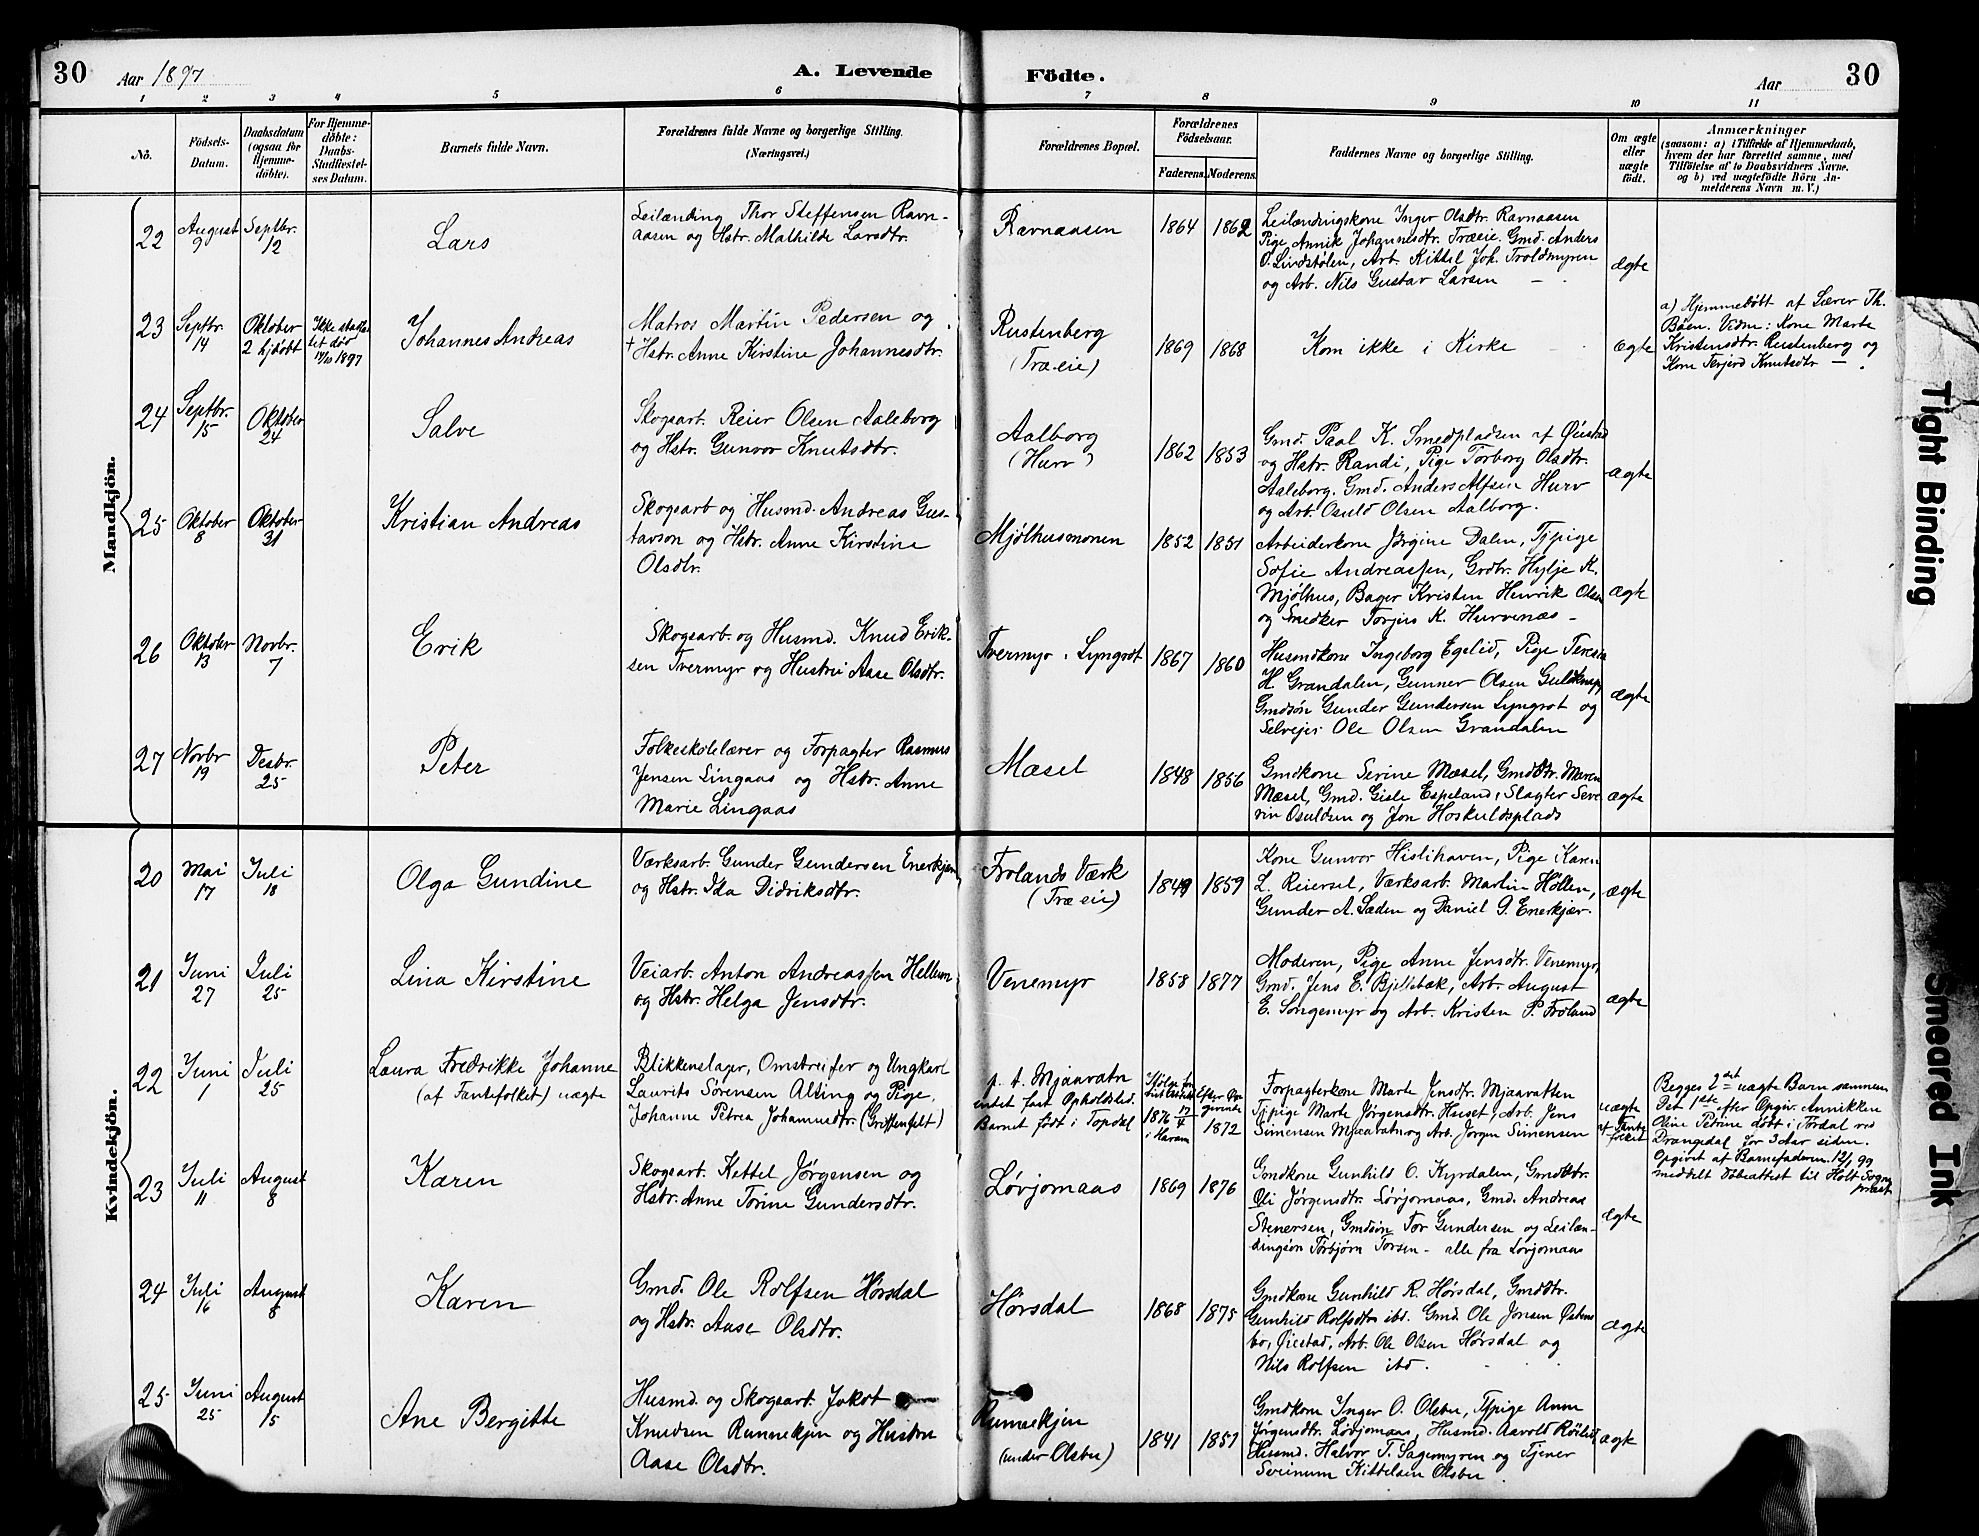 30 Aar 1897 A. Levende Födte. Aar 30
1 2 3 4 5 6 7 8 9 10 11
No.
Födsels-
Datum.
Daabsdatum
(ogsaa for
Hjemme-
döbte).
For Hjemme-
döbte:
Daabs-
Stadfæstel-
ses Datum.
Barnets fulde Navn.
Forældrenes fulde Navne og borgerlige Stilling.
(Næringsvei.)
Forældrenes Bopæl.
Forældrenes
Födselsaar.
Faderens. Moderens.
Faddernes Navne og borgerlige Stilling.
Om ægte
eller
uægte
födt.
Anmærkninger
(saasom: a) i Tilfælde af Hjemmedaab,
hvem der har forrettet samme, med
Tilföielse af to Daabsvidners Navne.
og b) ved uægtefödte Börn An-
melderens Navn m. V.)
Mandkjön.
22
August
9
Septbr.
12
Lars
Leilænding Thor Steffensen Ravn-
aasen og Hstr. Mathilde Larsdtr.
Ravnaasen
1864 1862
Leilændingskone Inger Olsdtr. Ravnaasen
Pige Annik Johannesdtr. Træeie, Gmd. Anders
O. Lindstølen, Arb. Kittel Joh. Troldmyren
og Arb. Nils Gustav Larsen
Ægte
23
Septbr.
14
Oktober
2 hjdøbt
Ikke stadfæ
tet død
1897
Johannes Andreas
Matros Martin Pedersen og
† Hstr. Anne Kirstine Johannesdtr.
Rustenberg
(Træeie)
1869 1868
Kom ikke i Kirke
Ægte
a) Hjemmedøbt af Lærer Th.
Bøen. Vidne: Kone Marte
Kristensdtr. Rustenberg og
Kone Terjerd Knutsdtr —
24
Septbr.
15
Oktober
24
Salve
Skogsarb. Reier Olsen Aaleborg
og Hstr. Gunvor Knutsdtr.
Aalborg
(Hurv)
1862 1853
Gmd. Paal K. Smedpladsen af Øiestad
og Hstr. Randi, Pige Torborg Olsdtr.
Aaleborg. Gmd. Anders Alfsen Hurv
og Arb. Osuld Olsen Aalborg.
ægte
25
Oktober
8
Oktober
31
Kristian Andreas
Skogsarb og Husmd. Andreas Gus-
tavson og Hstr. Anne Kirstine
Olsdtr.
Mjølhusmonen
1852 1851
Arbeiderkone Jørgine Dalen, Tjpige
Sofie Andreassen, Grdtr. Hylje K.
Mjølhus, Bager Kristen Henrik Olsen
og Snedker Torjus K. Hurvenæs -
ægte
26
Oktober
13
Novbr.
7
Erik
Skogsarb. og Husmd. Knud Erik-
sen Tvermyr og Hustru Aase Olsdtr.
Tvermyr, Lyngrot
1867 1860
Husmdkone Ingeborg Egelid, Pige Terese
H Grandalen, Gunner Olsen Guldknap
Gmdsøn Gunder Gundersen Lyngrot og
Selveier Ole Olsen Grandalen
ægte
27
Novbr
19
Desbr.
25
Peter
Folkeskolelærer og Forpagter Rasmus
Jensen Lingaas og Hstr. Anne
Marie Lingaas
Mæsel
1848 1856
Gmdkone Serine Mæsel, Gmddtr. Maren
Mæsel, Gmd. Gisle Espeland, Slagter Seve
rin Osuldsen og Jon Hoskuldsplads
ægte
Kvindekjön.
20
Mai
17
Juli
18
Olga Gundine
Værksarb. Gunder Gundersen Enerkjær
og Hstr. Ida Didriksdtr.
Frolands Værk
(Træeie)
1849 1859
Kone Gunvor Hislihaven, Pige Karen
L. Reiersel, Værksarb. Martin Hollen,
Gunder A. Sæden og Daniel G. Enerkjær.
ægte
21
Juni
27
Juli
25
Lina Kirstine
Veiarb. Anton Andreassen Hellum
og Hstr. Helga Jensdtr.
Venemyr
1858 1877
Moderen, Pige Anne Jensdtr. Venemyr,
Gmd. Jens E. Bjellebæk, Arb. August
E. Songemyr og Arb. Kristen P. Froland
ægte
22
Juni
1
Juli
25
Laura Fredrikke Johanne
(af Fantefolket) uægte
Blikkenslager, Omstreifer og Ungkarl
Laurits Sørensen Alting og Pige,
Johanne Petrea Johannesdtr. (Griffenfelt)
p. t. Mjaavatn
intet fast Opholdsted.
Barnet født i Topdal
1876
1872
Forpagterkone Marte Jensdtr. Mjaavatten
Tjpige Marte Jørgensdtr. Huset, Arb. Jens
Simensen Mjaavatn og Arb. Jørgen Simensen
uægte
af Fante
folket
Begges 2det uægte Barn sammen
Det 1ste efter Opgiv. Annikken
Oline Petrine døbt i Tørdal ved
Drangedal for 3 Aar siden.
Opgivet af Barnefaderen. 12/1 99
meddelt Døbeattest til Holt Sogne
præst
23
Juli
11
August
8
Karen
Skogsarb. Kettel Jørgensen og
Hstr. Anne Torine Gundersdtr.
Løvjomaas
1869 1876
Gmdkone Gunhild O. Kyrdalen, Gmddtr.
Oli Jørgensdtr. Løvjomaas, Gmd. Andreas
Stenersen, Gmdsøn Tor Gundersen og Leilæn-
dingsøn Torbjørn Torsen - alle fra Løvjomaas
Ægte
24
Juli
16
August
8
Karen
Gmd. Ole Rolfsen Hørsdal
og Hstr. Aase Olsdtr.
Hørsdal
1868 1875
Gmdkone Gunhild R. Hørsdal, Gmddtr.
Gunhild Rolfsdtr ibd. Gmd. Ole Jonsen Østens
bø, Øiestad, Arb. Ole Olsen Hørsdal og
Nils Rolfsen ibd.
ægte
25
Juni
25
August
15
Ane Bergitte
Husmd. og Skogsarb. Jakob
Knudsen Runnekjen og Hustru
Aase Olsdtr.
Runnekjen
(under Olsbu)
1841 1851
Gmdkone Inger O. Olsbu, Tjpige Anne
Jørgensdtr. Løvjomaas, Husmd. Aavold Røilid
Husmd. Halvor T. Sagemyren og Tjener
Severinum Kittelsen Olsbu
ægte
Tight Binding
Smeared Ink